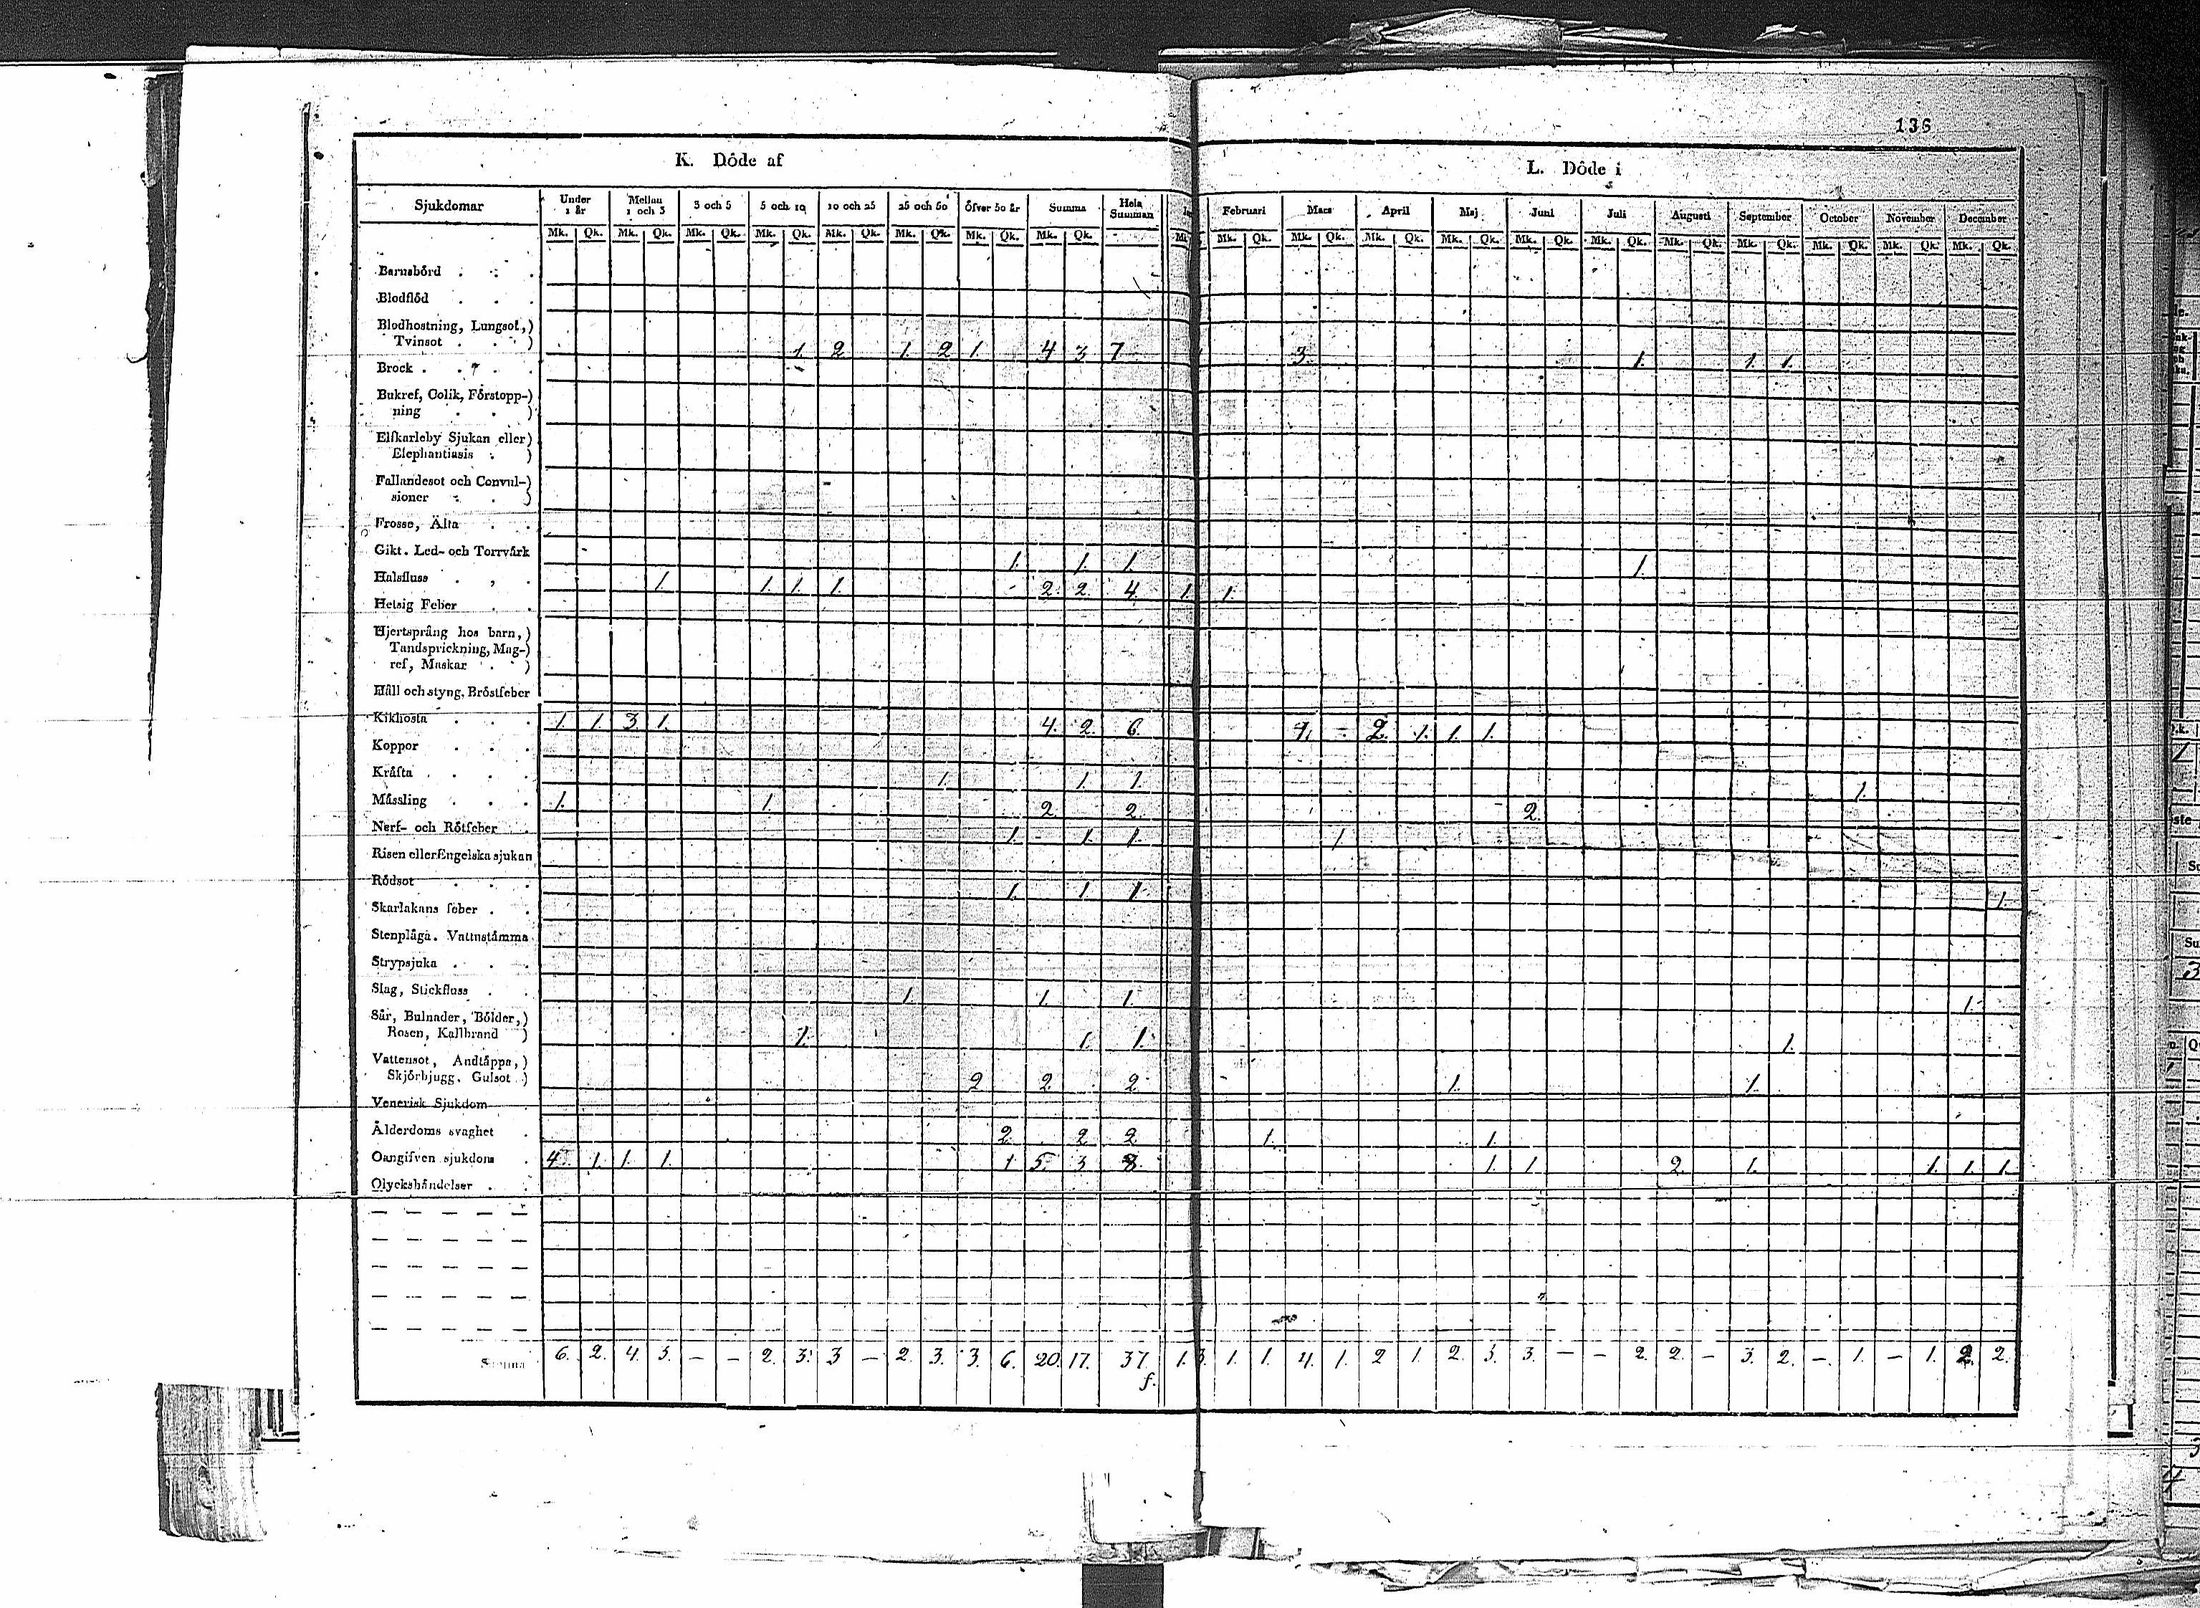 136
K. Döde af
L. Döde i
Sjukdomar Under 1 år Mellan 1 och 3 3 och 5 5 och 10 10 och 25 25 och 50 Öfver 50 år Summa Hela Summan
Februari Mars April Maj Juni Juli Augusti September October November December
Mk. Qk. Mk. Qk. Mk. Qk. Mk. Qk. Mk. Qk. Mk. Qk. Mk. Qk. Mk. Qk.
Mk. Qk. Mk. Qk. Mk. Qk. Mk. Qk. Mk. Qk. Mk. Qk. Mk. Qk. Mk. Qk. Mk. Qk. Mk. Qk. Mk. Qk.
Barnsbörd
Blodflöd
Blodhostning, Lungsot,)
Tvinsot ) 1. 2 1. 2 1. 4 3 7. 3. 1. 1. 1.
Brock
Bukref, Colik, Förstopp-)
ning )
Elfkarleby Sjukan eller)
Elephantiasis )
Fallandesot och Convul-)
sioner )
Frossa, Älta
Gikt. Led- och Torrvärk 1. 1. 1. 1.
Halsfluss 1. 1. 1. 1. 2. 2. 4. 1. 1.
Hetsig Feber
Hjertsprång hos barn,)
Tandsprickning, Mag-)
ref, Maskar )
Håll och styng, Bröstfeber
Kikhosta 1. 1. 3. 1. 4. 2. 6. 1. - 2. 1. 1. 1.
Koppor
Kräfta 1. 1. 1. 1.
Mässling 1. 1. 2. 2. 2.
Nerf- och Rötfeber 1. 1. 1. 1.
Risen eller Engelska sjukan
Rödsot 1. 1. 1. 1.
Skarlakans feber
Stenplåga. Vattustämma
Strypsjuka
Slag, Stickfluss 1. 1. 1. 1.
Sår, Bulnader, Bölder,)
Rosen, Kallbrand ) 1. 1. 1. 1.
Vattensot, Andtäppa,)
Skjörbjugg. Gulsot ) 2 2. 2. 1. 1.
Venerisk Sjukdom
Ålderdoms svaghet 2 2 2 1. 1.
Oangifven sjukdom 4. 1. 1. 1. 1 5. 3 8. 1. 1. 2. 1. 1. 1. 1.
Olyckshändelser
Summa 6. 2. 4. 3. — — 2. 3. 3 — 2. 3. 3. 6. 20. 17. 37. 1. 3. 1. 1. 4. 1. 2 1. 2. 3. 3. — — 2. 2. — 3. 2. — 1. — 1. 2. 2.
f.